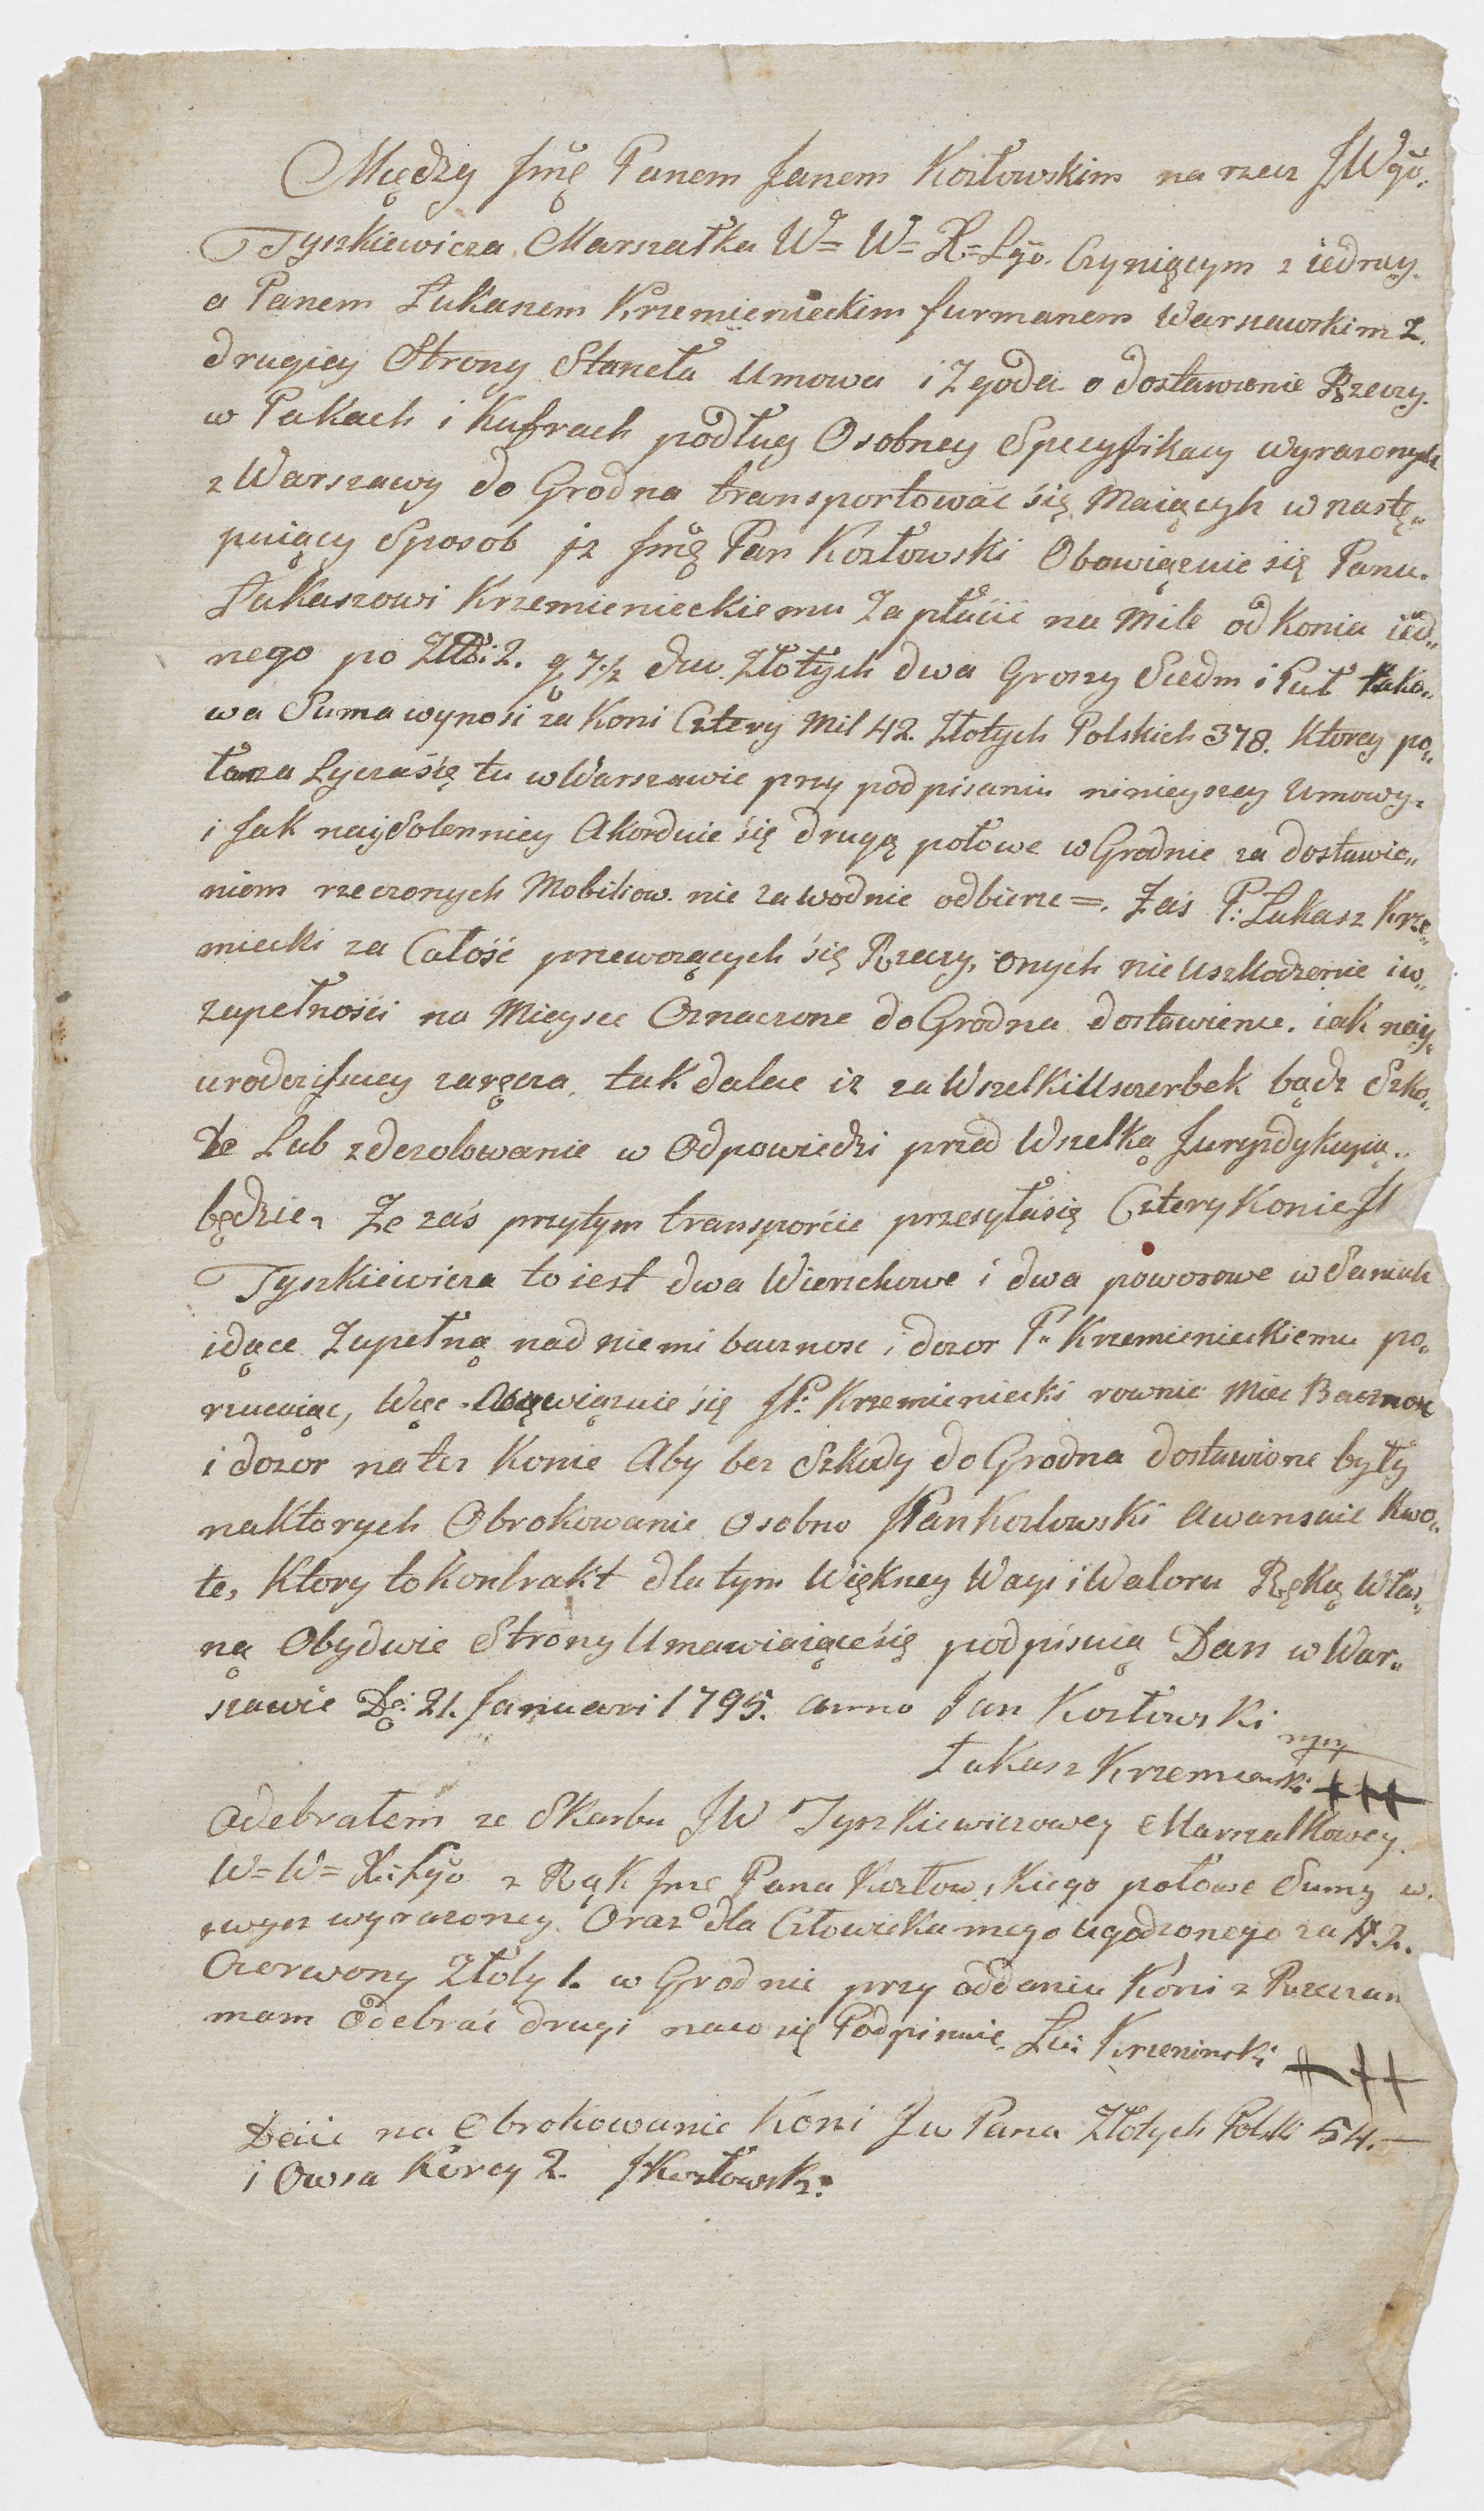 Między Jmę Panem Janem Kozłowskim na rzecz JWgo.
Tyszkiewicza Marszałka W= W= X=Lgo. Czyniącym z iedney.
a Panem Łukaszem Krzemienieckim furmanem Warszawskim z.
drugiey Strony Staneła Umowa i Zgoda o dostawienie Rzeczy.
w Pakach i Kufrach podług Osobney Specyfikacy wyrazonych
z Warszawy do Grodna transportować się Maiącyh w nastę„
puiący Sposob jz Jmę Pan Kozłowski Obowiązuie się Panu.
Łukaszowi Krzemienieckiemu Zapłacic na Mile od Konia ied„
nego po Złł: 2. g 7½ Złotych dwa Groszy Siedm i Puł tako„
wa Suma wynosi za Koni Cztery Mil 42. Złotych Polskich 378. Ktorey po„
Lyczasię tu w Warszawie przy podpisaniu ninieyszey Umowy.
i Jak najSolenniey Akorduie się drugą połowe w Grodnie za dostawie„
niem rzeczonych Mobiliow. nie zawodnie odbierze =. Zaś P: Lukasz Krze„
miecki za Całość przewozących się Rzeczy, onych nie Uszkodzenie i w„
zupełnośći na Mieysce Oznaczone do Grodna dostawienie. iak nay„
urodzisciey zaręcza, tak dalece iz za Wszelki Uszczerbek bądz Szko„
de Lub zdezolowanie w Odpowiedzi przed Wszelką Juryzdykcyią..
będzie. Ze zaś przytym transporćie przesyłasię Cztery Konie J
Tyszkiewicza to iest dwa Wierzchowe i dwa powozowe w Saniach
idące Zupełną nad niemi bacznosc i dozor P. Krzemienieckiemu po„
rzucaiąc, Więc obowiązuie się JP: Krzemieniecki rownie Miec Bacznosc
i dozor na tez Konie Aby bez Szkody do Grodna dostawione były
naktorych Obrokowanie Osobno JPan Kozlowski Awansuie Kwo„
te, Ktory to Kontrakt dla tym Więkney Wagi i Waloru Ręką Włas„
ną Obydwie Strony Umawiaiącesię podpisuią Dan w War„
szawie D: 21. Januari 1795. anno Jan Kozłowski
mpp
Łukasz Krzemienski +++
Odebrałem ze Skarbu JW Tyszkiewiczowey Marszalkowey.
W= W= X: Lgo z Rąk Jmc Pana Kozłowskiego połowe Sumy w.
zwysz wyrazoney. Oraz dla Człowieka mego ugodzonego za #.2.
Czerwony Złoty 1. w Grodnie przy oddaniu Koni z Rzeczam
mam Odebrać drugi naco się Podpisuię. Łu: Krzeminski +++
Daię na Obrokowanie Koni Jw Pana Złotych Polski 54.—
i Owsa Korcy 2. JKozłowski